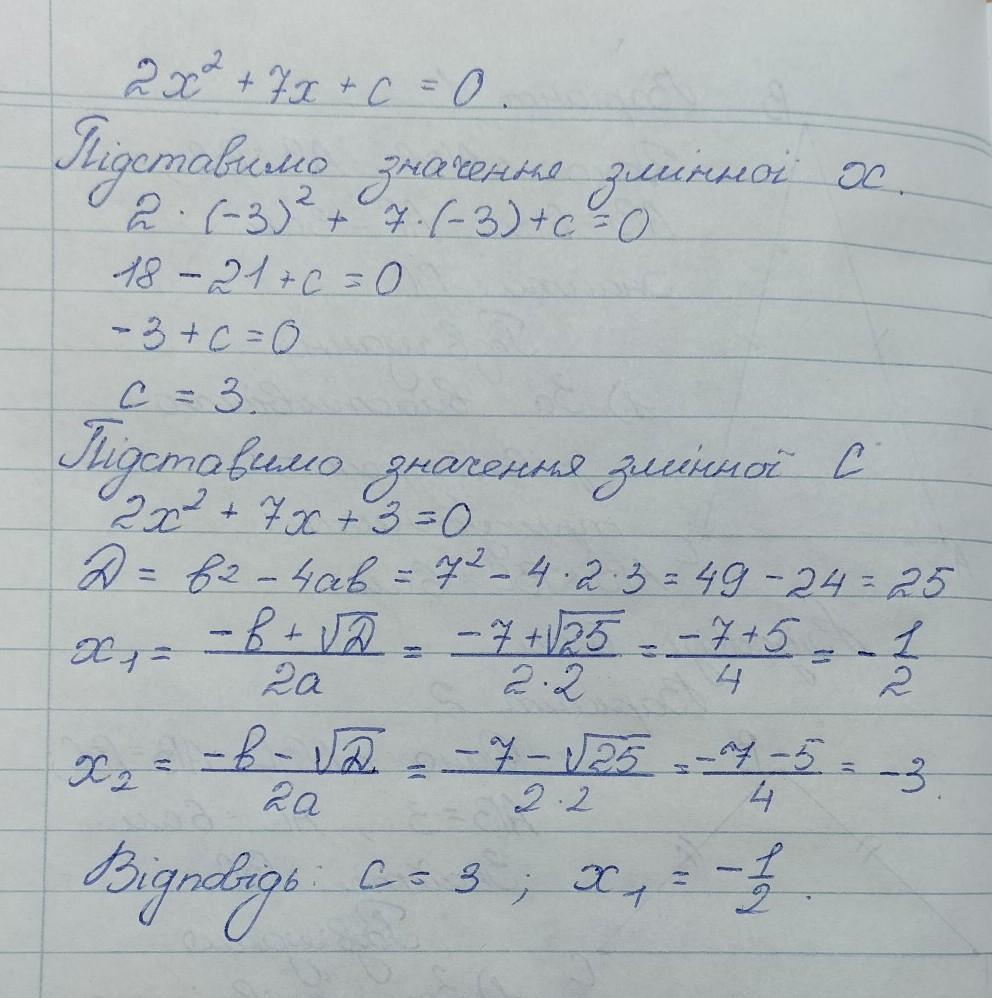 2x² + 7x + c = 0.
Підставимо значення змінної x.
2 · (-3)² + 7 · (-3) + c = 0
18 - 21 + c = 0
-3 + c = 0
c = 3.
Підставимо значення змінної C
2x² + 7x + 3 = 0
D = b² - 4ab = 7² - 4 · 2 · 3 = 49 - 24 = 25
x₁ = (-b + √D)/(2a) = (-7 + √25)/(2 · 2) = (-7 + 5)/4 = -1/2
x₂ = (-b - √D)/(2a) = (-7 - √25)/(2 · 2) = (-7 - 5)/4 = -3.
Відповідь: c = 3 ; x₁ = -1/2.